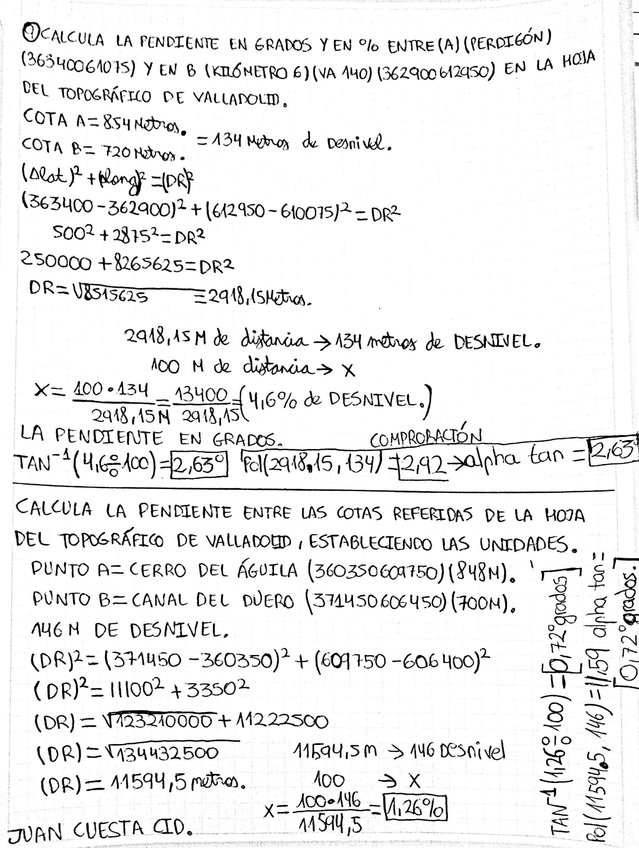 ① CALCULA LA PENDIENTE EN GRADOS Y EN % ENTRE (A) (PERDIGÓN)
(36340061075) Y EN B (KILÓMETRO 6) (VA 140) (362900612950) EN LA HOJA
DEL TOPOGRÁFICO DE VALLADOLID.
COTA A = 854 Metros.
COTA B = 720 Metros.
= 134 Metros de Desnivel.
(Δlat)² + (Δlong)² = (DR)²
(363400 - 362900)² + (612950 - 610075)² = DR²
500² + 2875² = DR²
250000 + 8265625 = DR²
DR = √8515625 = 2918,15 Metros.
2918,15 M de distancia → 134 metros de DESNIVEL.
100 M de distancia → X
X = 100 · 134 / 2918,15 M = 13400 / 2918,15 = (4,6% de DESNIVEL.)
LA PENDIENTE EN GRADOS. COMPROBACIÓN
TAN⁻¹ (4,6 ÷ 100) = 2,63° Pol(2918,15, 134) = 2,92 → alpha tan = 2,63°
CALCULA LA PENDIENTE ENTRE LAS COTAS REFERIDAS DE LA HOJA
DEL TOPOGRÁFICO DE VALLADOLID, ESTABLECIENDO LAS UNIDADES.
PUNTO A = CERRO DEL ÁGUILA (360350609750) (848M).
PUNTO B = CANAL DEL DUERO (371450606450) (700M).
146 M DE DESNIVEL.
(DR)² = (371450 - 360350)² + (609750 - 606400)²
(DR)² = 11100² + 3350²
(DR) = √123210000 + 11222500
(DR) = √134432500
(DR) = 11594,5 metros.
11594,5 m → 146 Desnivel
100 → X
X = 100 · 146 / 11594,5 = 1,26%
JUAN CUESTA CID.
TAN⁻¹ (1,26 ÷ 100) = 0,72° grados
Pol(11594,5, 146) = 11,59 alpha tan =
0,72° grados.